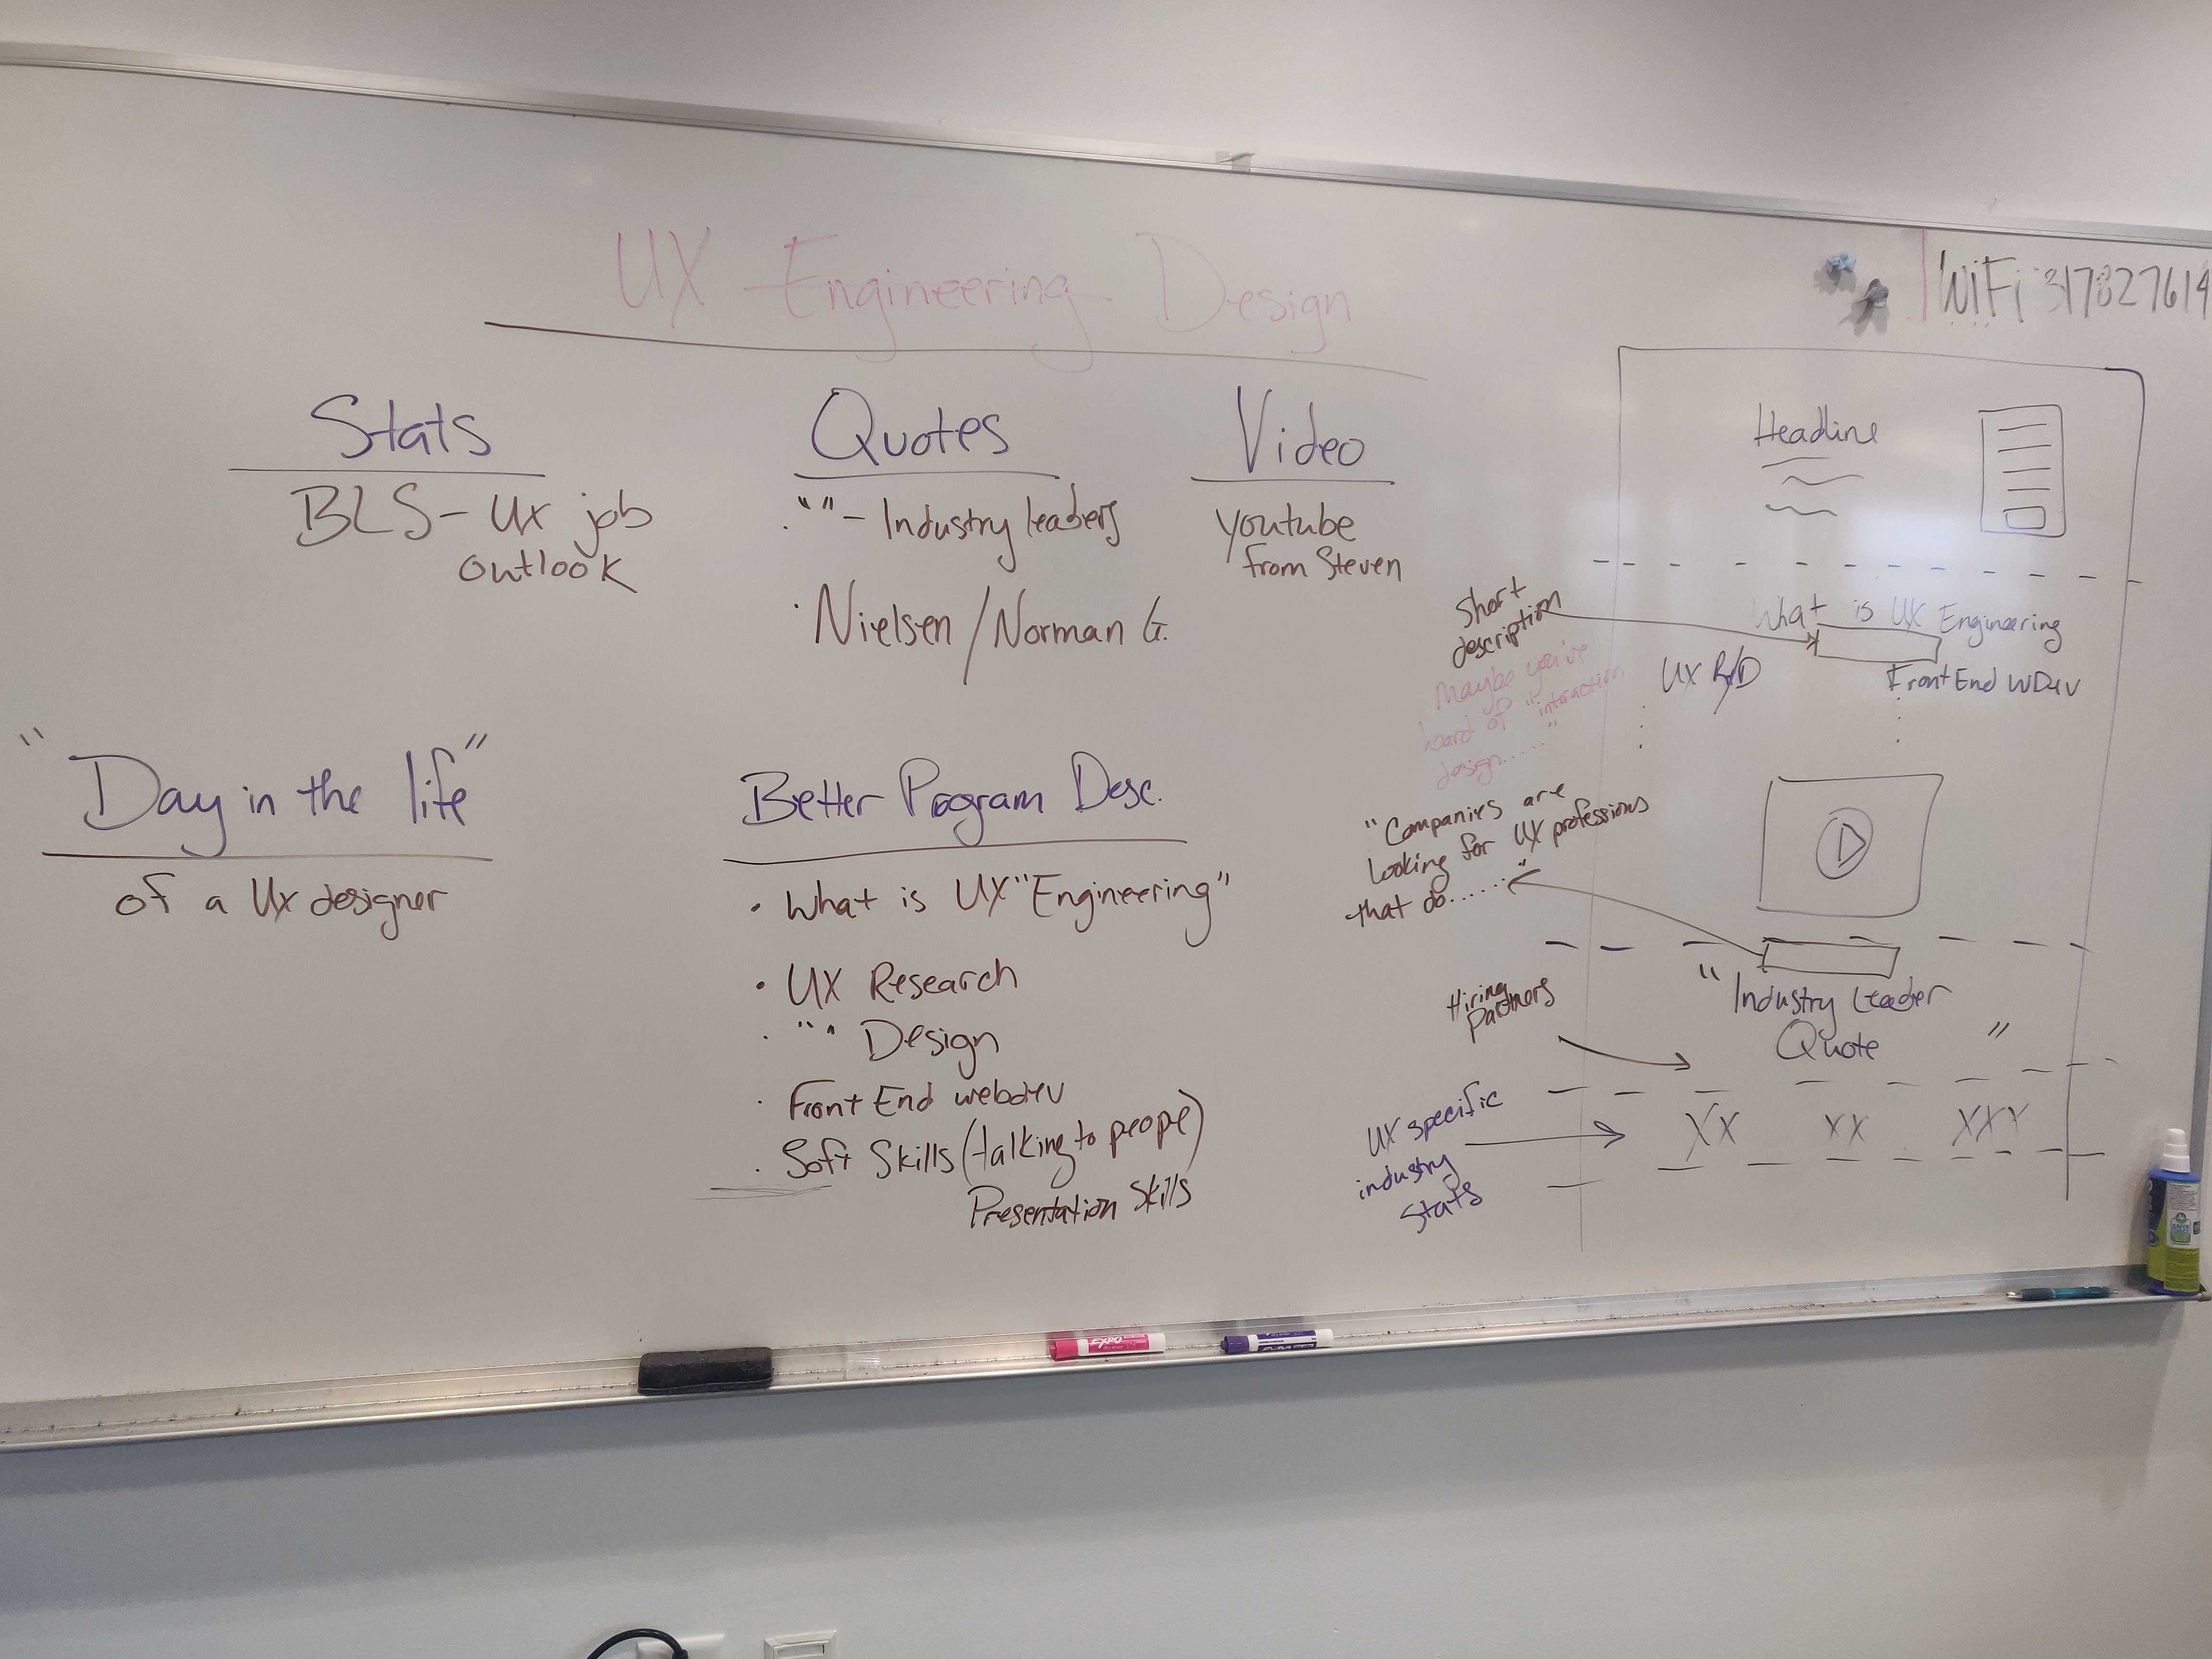 UX Engineering Design
WiFi 317827614
Stats
BLS - UX job
outlook
Quotes
" " - Industry leaders
Nielsen / Norman G.
Video
Youtube
from Steven
"Day in the life"
of a UX designer
Better Program Desc.
• What is UX "Engineering"
• UX Research
• " " Design
• Front End webdev
• Soft Skills (talking to people)
Presentation Skills
Short
description
Maybe you've
heard of "interaction
design....."
"Companies are
looking for UX professions
that do......"
Hiring
Partners
UX specific
industry
Stats
Headline
What is UX Engineering
UX R/D
Front End WDev
"Industry Leader
Quote"
XX XX XXX
EXPO